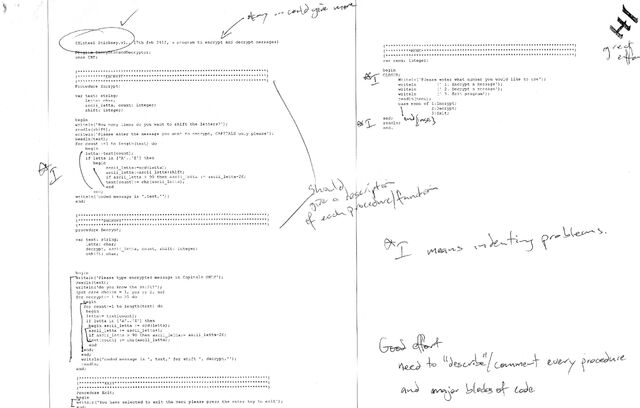 okay ... could give more
(Michael Stachery.v1., 17th Feb 2012, a program to encrypt and decrypt messages)
uses CRT;
Procedure Encrypt;
var text: string;
letta: char;
ascii_letta, count: integer;
shift: integer;
begin
writeln('How many items do you want to shift the letters?');
readln(shift);
writeln('Please enter the message you want to encrypt, CAPITALS only please');
readln(text);
for count:=1 to length(text) do
begin
letta:=text[count];
if letta in ['A'..'Z'] then
begin
ascii_letta:=ord(letta);
ascii_letta:=ascii_letta+shift;
if ascii_letta > 90 then ascii_letta := ascii_letta-26;
text[count] := chr(ascii_letta);
end
end;
writeln('coded message is ',text,'');
end;
I
Should
give a description
of each procedure/function
procedure Decrypt;
var text: string;
letta: char;
decrypt, ascii_letta, count, shift: integer;
begin
writeln('Please type encrypted message in Capitals ONLY');
readln(text);
writeln('do you know the shift?');
for decrypt:= 1 to 25 do
begin
for count:=1 to length(text) do
begin
letta:= text[count];
if letta in ['A'..'Z'] then
begin ascii_letta := ord(letta);
ascii_letta := ascii_letta+1;
if ascii_letta > 90 then ascii_letta:= ascii_letta-26;
text[count] := chr(ascii_letta);
end
end;
writeln('coded message is ', text,' for shift ', decrypt,'');
readln;
end;
end;
Procedure Exit;
begin
writeln('You have selected to exit the menu please press the enter key to exit');
end;
great
effort
var menu: integer;
begin
CLRSCR;
writeln('Please enter what number you would like to use');
writeln(' 1. Encrypt a message');
writeln(' 2. Decrypt a message');
writeln(' 3. Exit program');
readln(menu);
case menu of 1:Encrypt;
2:Decrypt;
3:Exit;
end; end{case}
readln;
end.
I
I
I means indenting problems.
Good effort
need to "describe"/comment every procedure
and major blocks of code